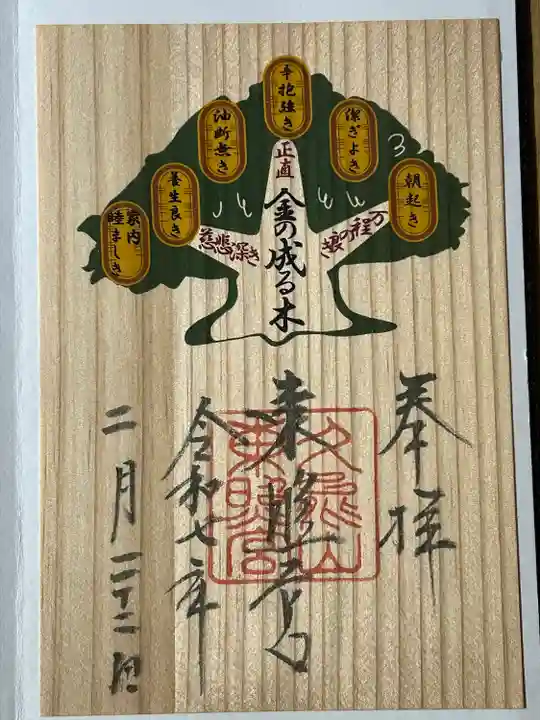 朝起き
潔ぎよき
辛抱強き
油断無き
養生良き
家内
睦まじき
万程の良き
正直
慈悲深き
金の成る木
奉拝
東照宮
久能山
東照宮
令和七年
二月二十二日